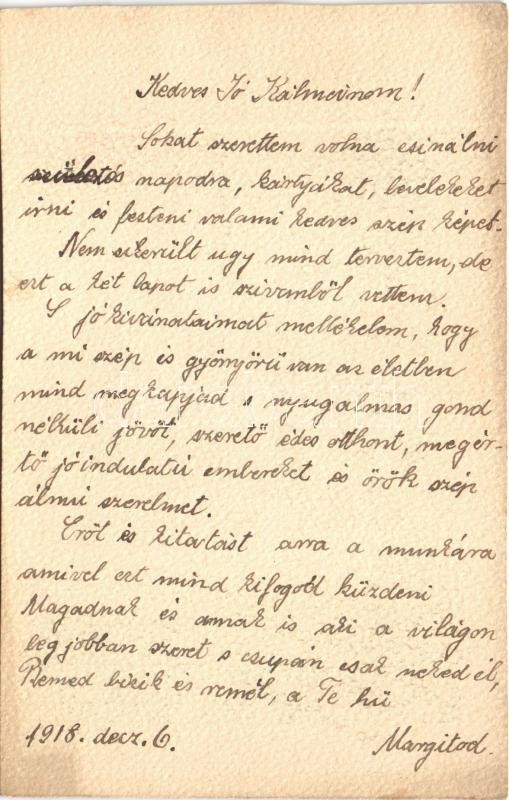 Kedves Jó Kálmánom!
Sokat szerettem volna csinálni
születés napodra, kártyákat, leveleket
irni és festeni valami kedves szép képet.
Nem sikerült ugy mind terveztem, de
ezt a két lapot is szivemből vettem.
S jókivánataimat mellékelem, hogy
a mi szép és gyönyörű van az életben
mind megkapjad s nyugalmas gond
nélküli jövőt, szerető édes otthont, megér-
tő jóindulatú embereket és örök szép
álmú szerelmet.
Erőt és kitartást arra a munkára
amivel ezt mind kifogod küzdeni
Magadnak és annak is aki a világon
legjobban szeret s csupán csak neked él,
Benned bizik és remél, a Te hű
1918. decz. 6. Margitod.